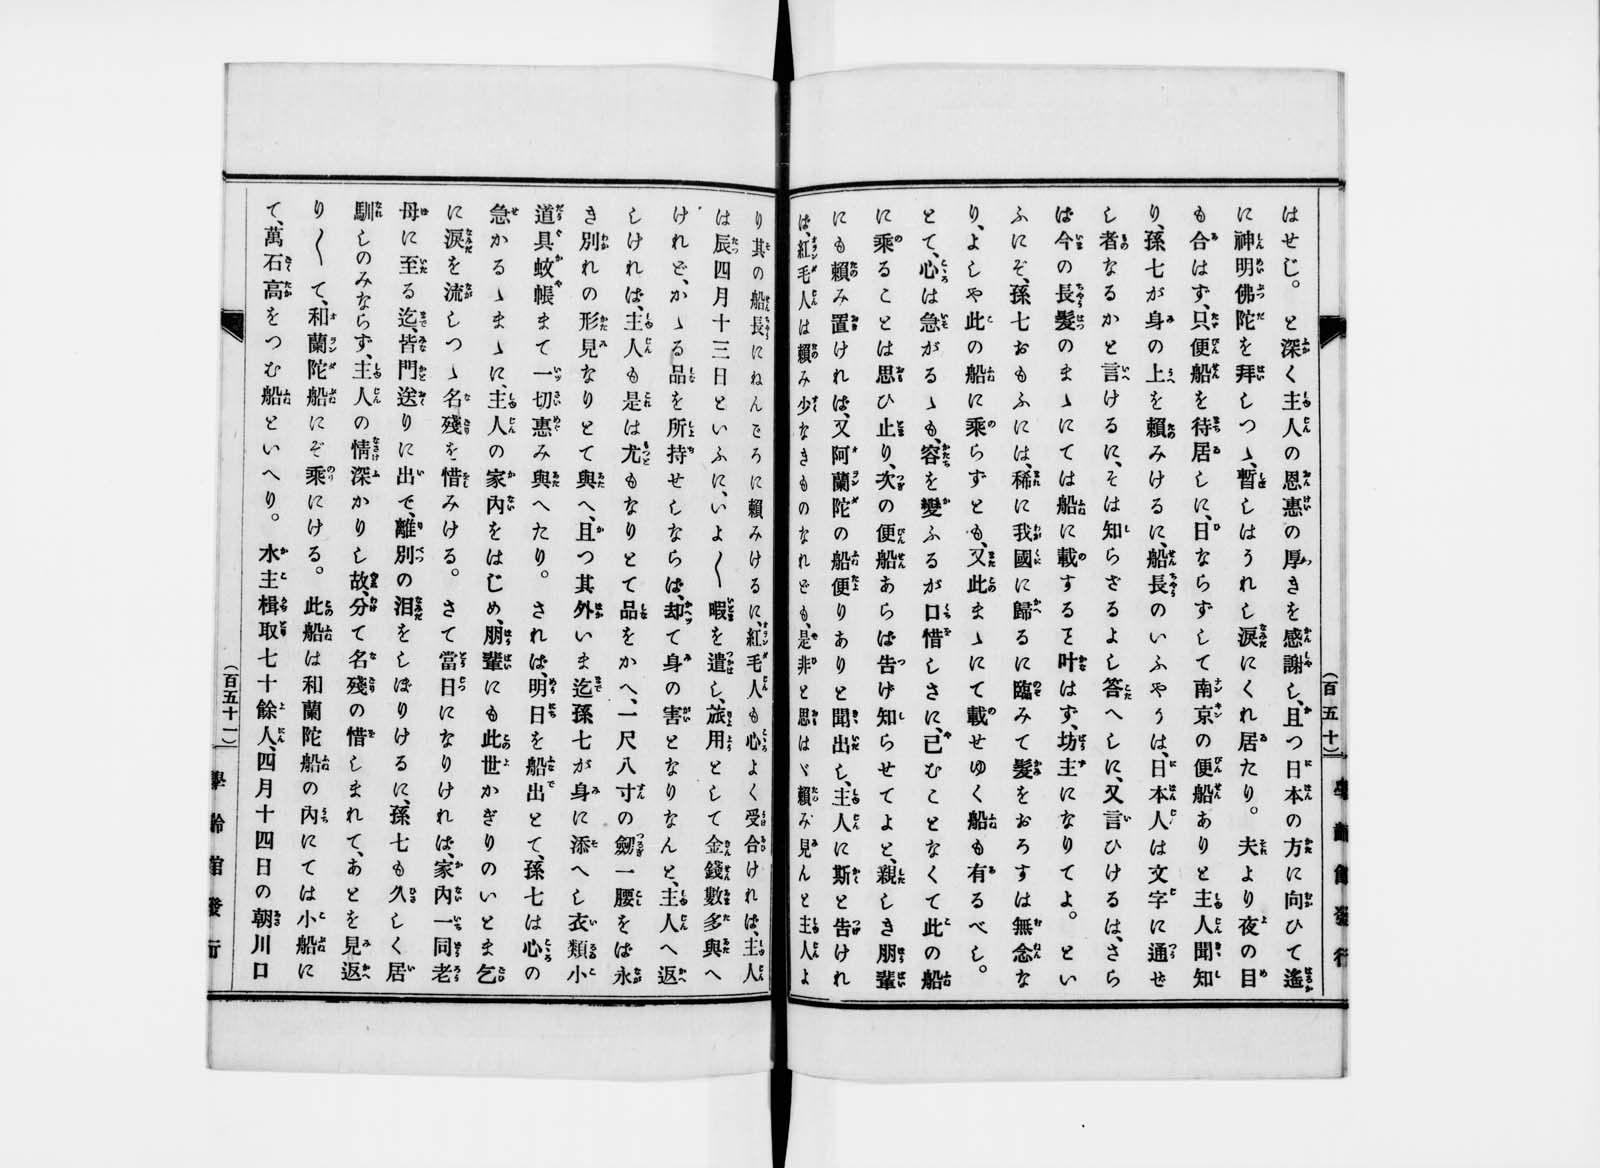 はせじ。と深く主人の恩惠の厚きを感謝し、且つ日本の方に向ひて遙
に神明佛陀を拜しつゝ、暫しはうれし涙にくれ居たり。夫より夜の目
も合はず、只便船を待居しに、日ならずして南京の便船ありと主人聞知
り、孫七が身の上を賴みけるに、船長のいふやうは、日本人は文字に通せ
し者なるかと言けるに、そは知らざるよし答へしに、又言ひけるは、さら
ば今の長髮のまゝにては船に載するを叶はず、坊主になりてよ。とい
ふにぞ、孫七おもふには、稀に我國に歸るに臨みて髮をおろすは無念な
り、よしや此の船に乘らずとも、又此まゝにて載せゆく船も有るべし。
とて、心は急がるゝも、容を變ふるが口惜しさに、已むことなくて此の船
に乘ることは思ひ止り、次の便船あらば告げ知らせてよと、親しき朋輩
にも賴み置けれは、又阿蘭陀の船便りありと聞出し、主人に斯と告けれ
ば、紅毛人は賴み少なきものなれども、是非と思はゞ賴み見んと主人よ
(百五十)
學齡館發行
り其の船長にねんごろに賴みけるに、紅毛人も心よく受合ければ、主人
は辰四月十三日といふに、いよ〱暇を遣し、旅用として金錢數多與へ
けれど、かゝる品を所持せしならば、却て身の害となりなんと、主人へ返
しければ、主人も是は尤もなりとて品をかへ、一尺八寸の劒一腰をば永
き別れの形見なりとて與へ、且つ其外いま迄孫七が身に添へし衣類小
道具蚊帳まて一切惠み與へたり。されば、明日を船出とて、孫七は心の
急かるゝまゝに、主人の家內をはじめ、朋輩にも此世かぎりのいとま乞
に涙を流しつゝ名殘を惜みける。さて當日になりければ、家內一同老
母に至る迄、皆門送りに出で、離別の泪をしぼりけるに、孫七も久しく居
馴しのみならず、主人の情深かりし故、分て名殘の惜しまれて、あとを見返
り〱て、和蘭陀船にぞ乘にける。此船は和蘭陀船の內にては小船に
て、萬石高をつむ船といへり。水主楫取七十餘人、四月十四日の朝川口
(百五十一)
學齡館發行